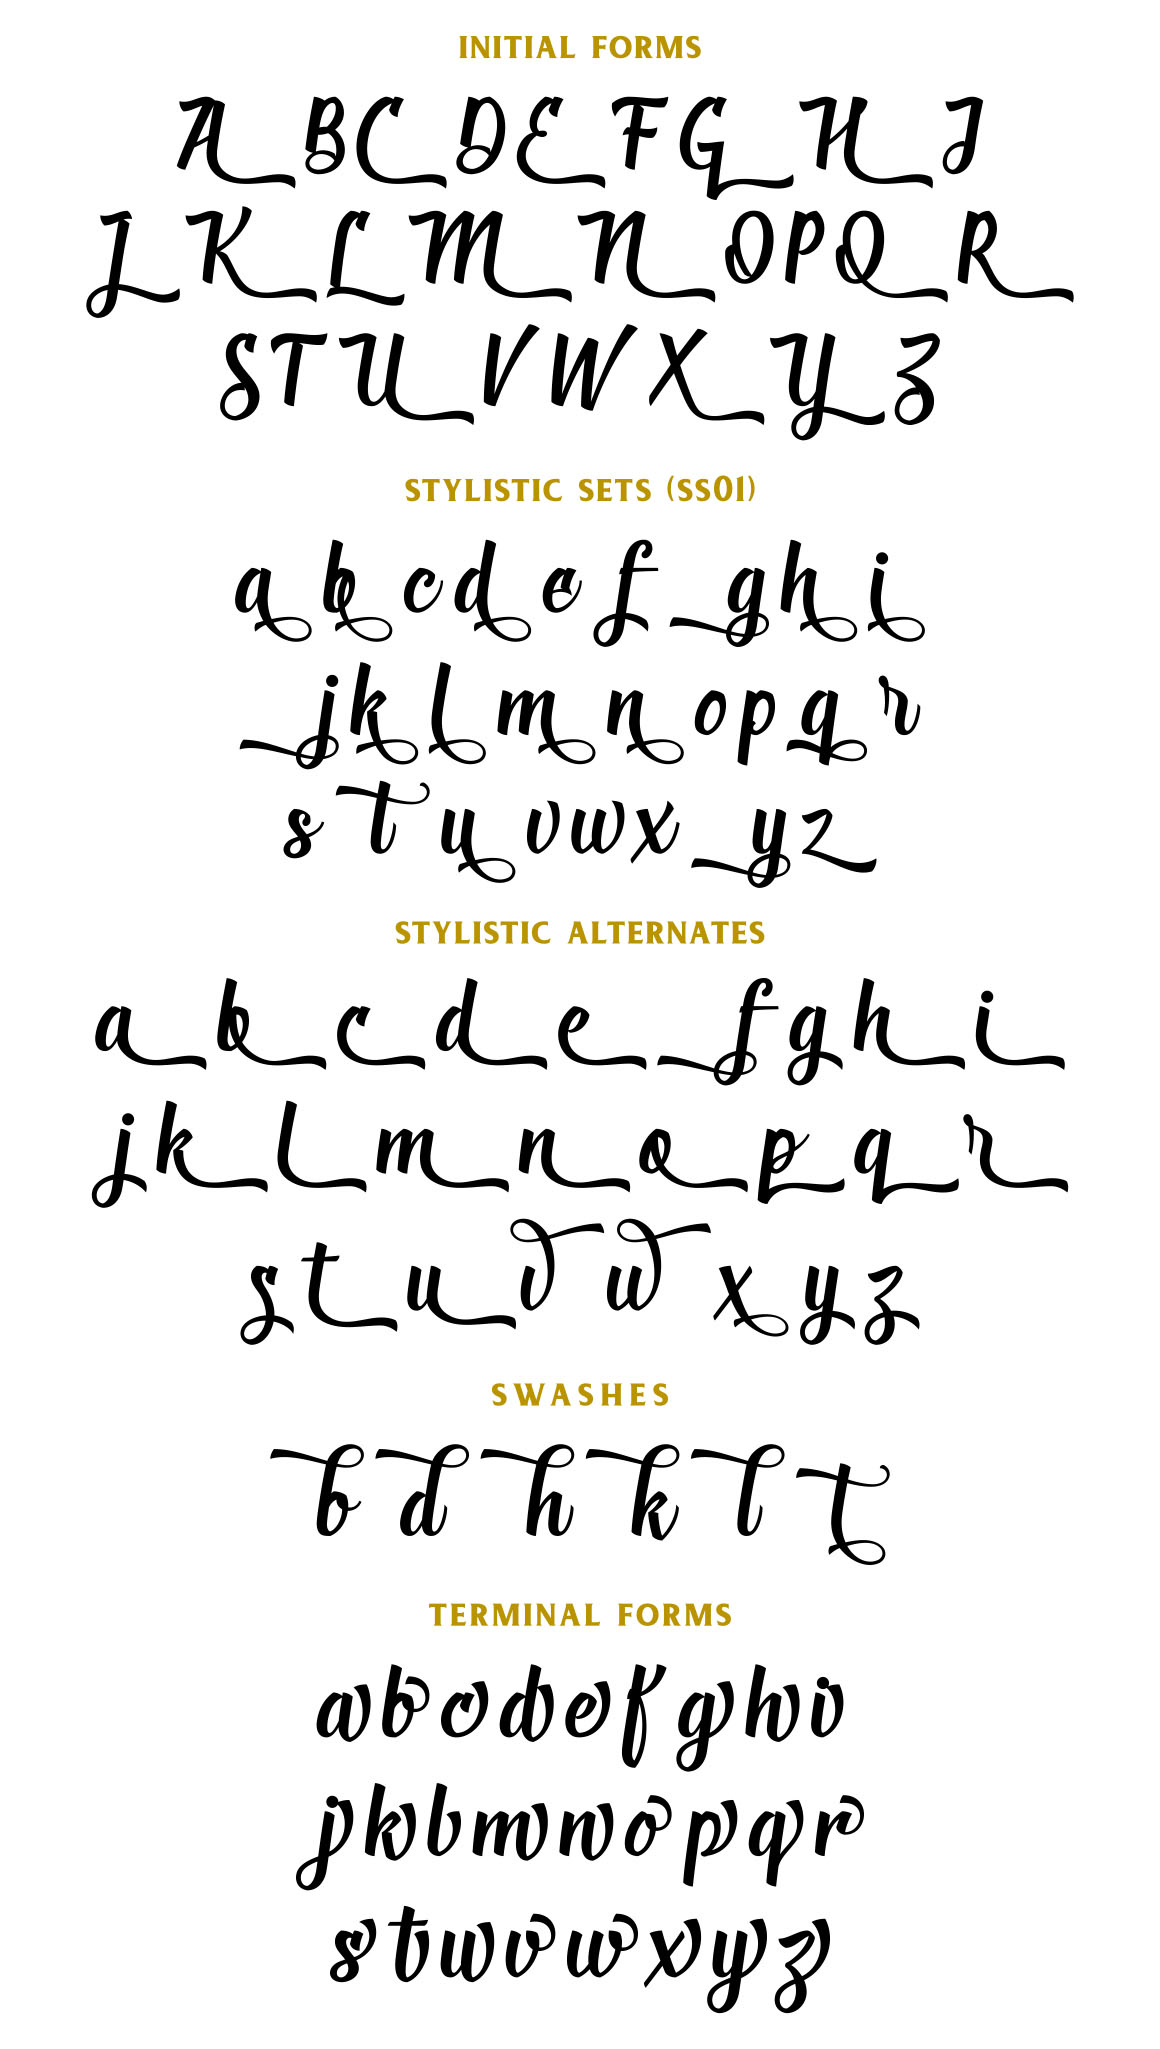 INITIAL FORMS
A B C D E F G H I
J K L M N O P Q R
S T U V W X Y Z
STYLISTIC SETS (SS01)
a b c d e f g h i
j k l m n o p q r
s t u v w x y z
STYLISTIC ALTERNATES
a b c d e f g h i
j k l m n o p q r
s t u v w x y z
SWASHES
b d h k l t
TERMINAL FORMS
a b c d e f g h i
j k l m n o p q r
s t u v w x y z